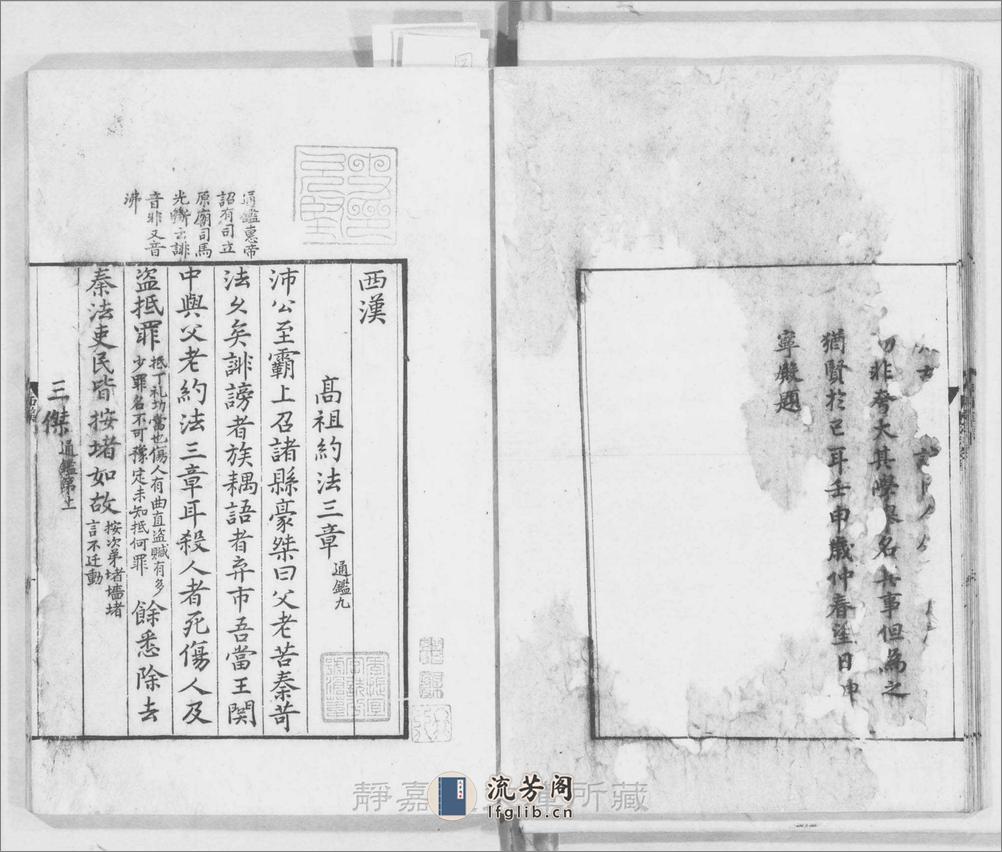 切非夸大其學但為之
猶賢於已耳壬申歲仲春望日
寧嚴題
通鑑惠帝
詔有司立
原廟司馬
光斷云誹
音非又音
沸
西漢
高祖約法三章 通鑑九
沛公至霸上召諸縣豪桀曰父老苦秦苛
法久矣誹謗者族耦語者弃市吾當王関
中與父老約法三章耳殺人者死傷人及
盜抵罪 抵丁礼切當也傷人有曲直盜贓有多
少罪名不可豫定未知抵何罪 餘悉除去
秦法吏民皆按堵如故 按次弟堵墻堵
言不迁動
三傑 通鑑第十一
靜嘉 所藏
流芳阁
lfglib.cn